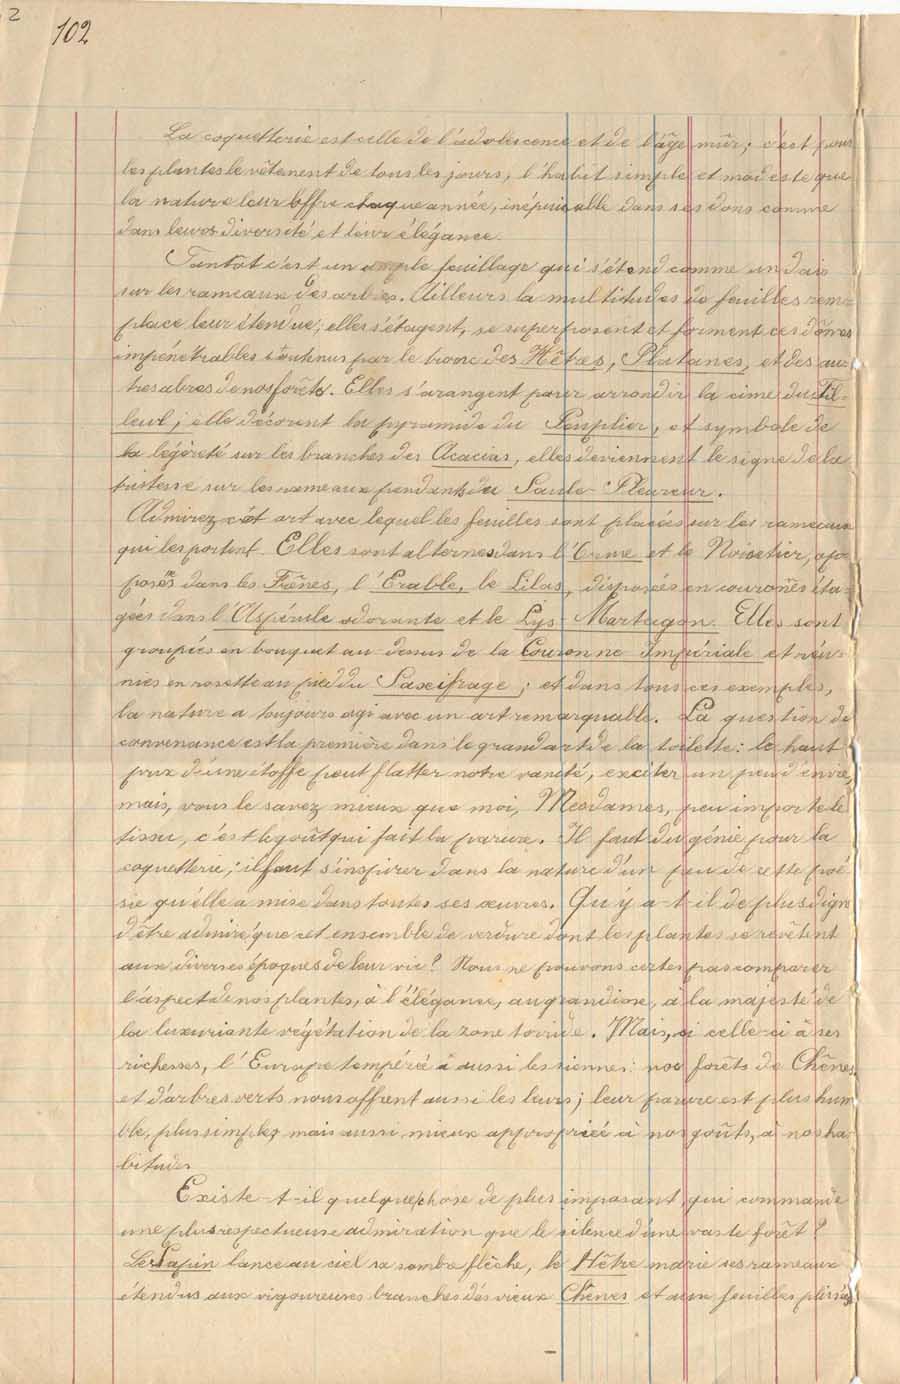 2
102
La coquetterie est celle de l'adolescence et de l'âge mûr; c'est pour
les plantes le vêtement de tous les jours, l'habit simple et modeste que
la nature leur offre chaque année, inépuisable dans ses dons comme
dans leurs diversité et leur élégance.
Tantôt c'est un ample feuillage qui s'étend comme un dais
sur les rameaux des arbres. Ailleurs la multitudes de feuilles rem-
place leur étendue; elles s'étagent, se superposent et forment ces dômes
impénétrables soutenus par le tronc des Hêtres, Platanes, et des au-
tres abres de nos forêts. Elles s'arangent pour arrondir la cime du Til-
leul; elle décorent la pyramide du Peuplier, et symbole de
la légèreté sur les branches des Acacias, elles deviennent le signe de la
tristesse sur les rameaux pendants du Saule-Pleureur.
Admirez cet art avec lequel les feuilles sont placées sur les rameaux
qui les portent. Elles sont alternes dans l'Orme et le Noisetier, op-
posées dans les Frênes, l'Erable, le Lilas, disposées en couronnes éta-
gées dans l'Aspérule odorante et le Lys-Martagon. Elles sont
groupées en bouquet au-dessus de la Couronne Impériale et réu-
nies en rosette au pied du Saxifrage; et dans tous ces exemples,
la nature a toujours agi avec un art remarquable. La question de
convenance est la première dans le grand art de la toilette: le haut
prix d'une étoffe peut flatter notre vanité, exciter un peu d'envie,
mais, vous le savez mieux que moi, Mesdames, peu importe le
tissu, c'est le goût qui fait la parure. Il faut du génie pour la
coquetterie; il faut s'inspirer dans la nature d'un peu de cette poé-
sie qu'elle a mise dans toutes ses œuvres. Qu'y a-t-il de plus digne
d'être admiré que cet ensemble de verdure dont les plantes se revêtent
aux diverses époques de leur vie? Nous ne pouvons certes pas comparer
l'aspect de nos plantes, à l'élégance, au grandiose, à la majesté de
la luxuriante végétation de la zone torride. Mais, si celle-ci à ses
richesses, l'Europe tempérée à aussi les siennes: nos forêts de Chênes
et d'arbres verts nous offrent aussi les leurs; leur parure est plus hum-
ble, plus simple, mais aussi mieux appropriée à nos goûts, à nos ha-
bitudes
Existe-t-il quelque chose de plus imposant, qui commande
une plus respectueuse admiration que le silence d'une vaste forêt?
Le Sapin lance au ciel sa sombre flèche, le Hêtre marie ses rameaux
étendus aux vigoureuses branches des vieux Chênes et aux feuilles